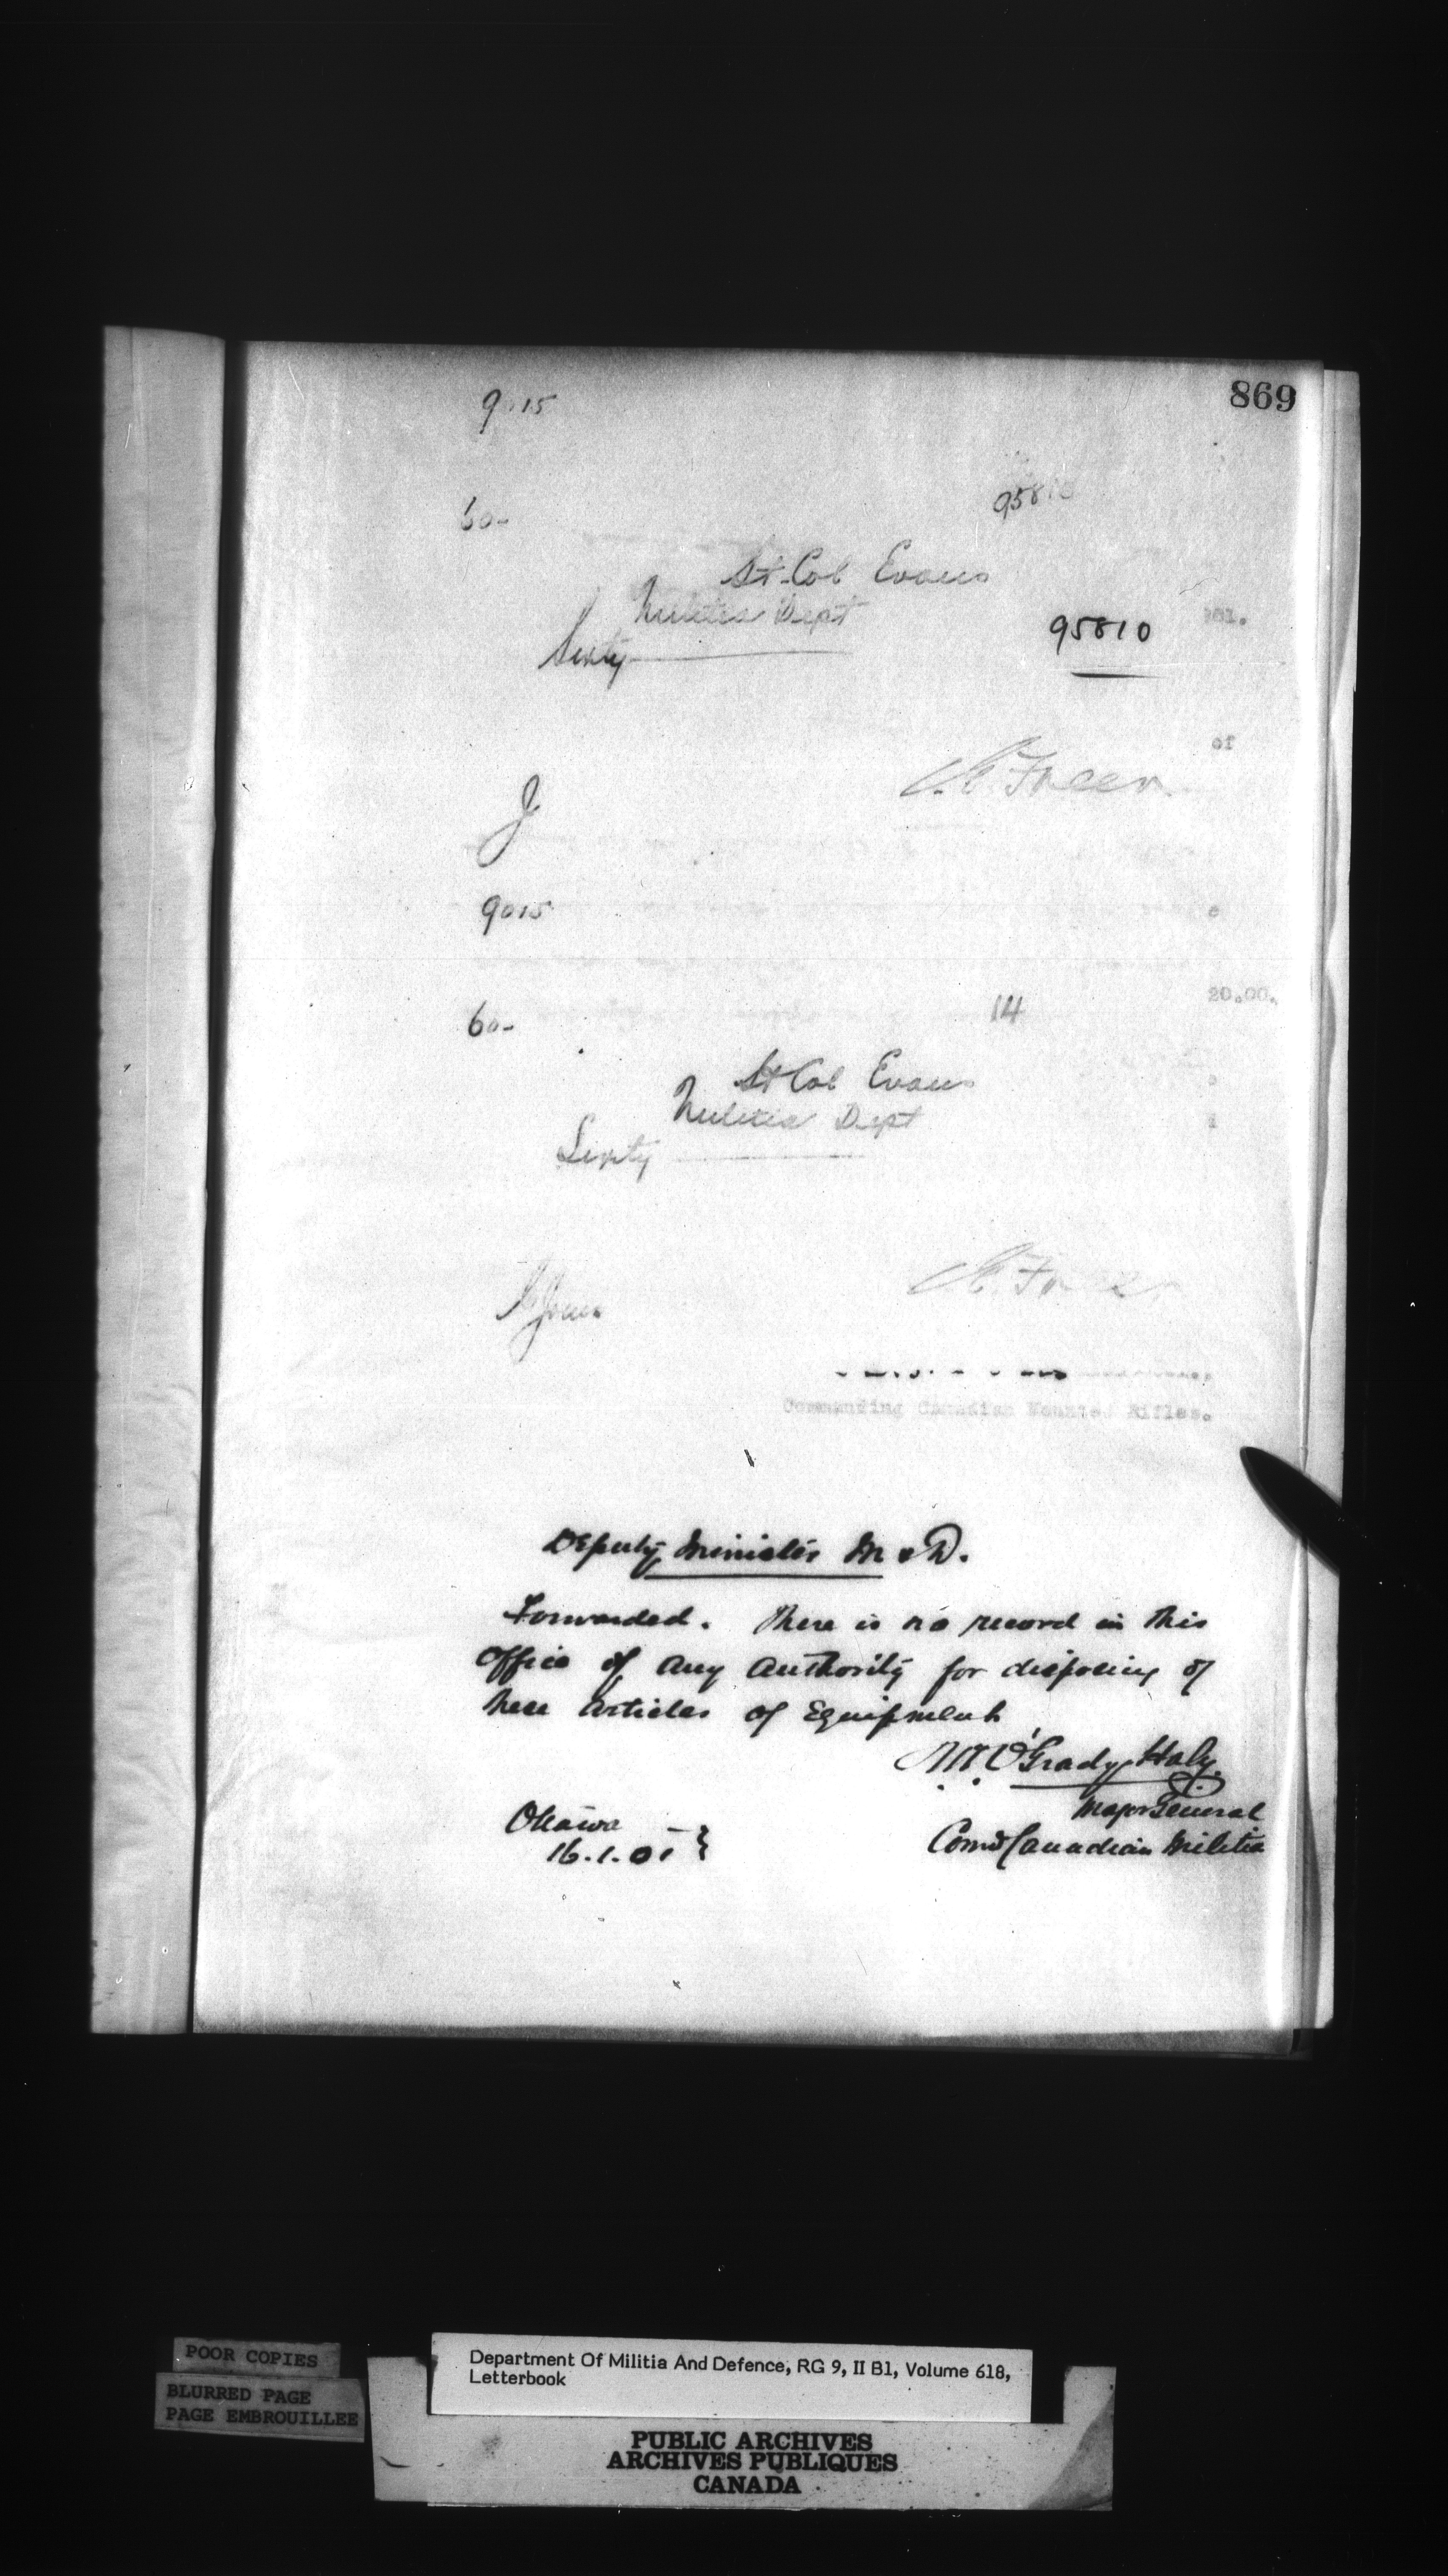 869
9015
60-
95810
Lt-Col Evans
Militia Dept
95810
Sixty
of
Freer
9015
20.00.
60-
14
Lt Col Evans
Militia Dept
Sixty
Commanding Canadian Mounted Rifles.
Deputy Minister M & D.
Forwarded. There is no record in this
Office of any Authority for disposing of
these Articles of Equipment
O'Grady Haly
Major General
Comdg Canadian Militia
Ottawa
16.1.01
POOR COPIES
BLURRED PAGE
PAGE EMBROUILLEE
Department Of Militia And Defence, RG 9, II B1, Volume 618,
Letterbook
PUBLIC ARCHIVES
ARCHIVES PUBLIQUES
CANADA